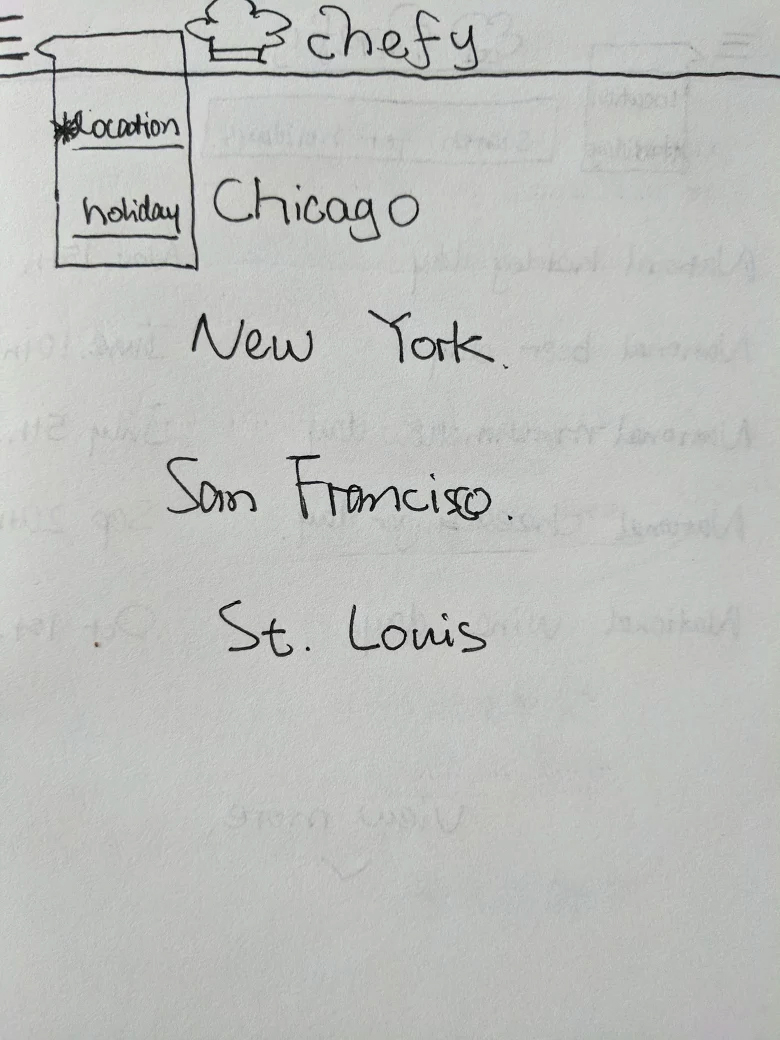 chefy
Location
holiday
Chicago
New York.
San Francisco.
St. Louis
View more